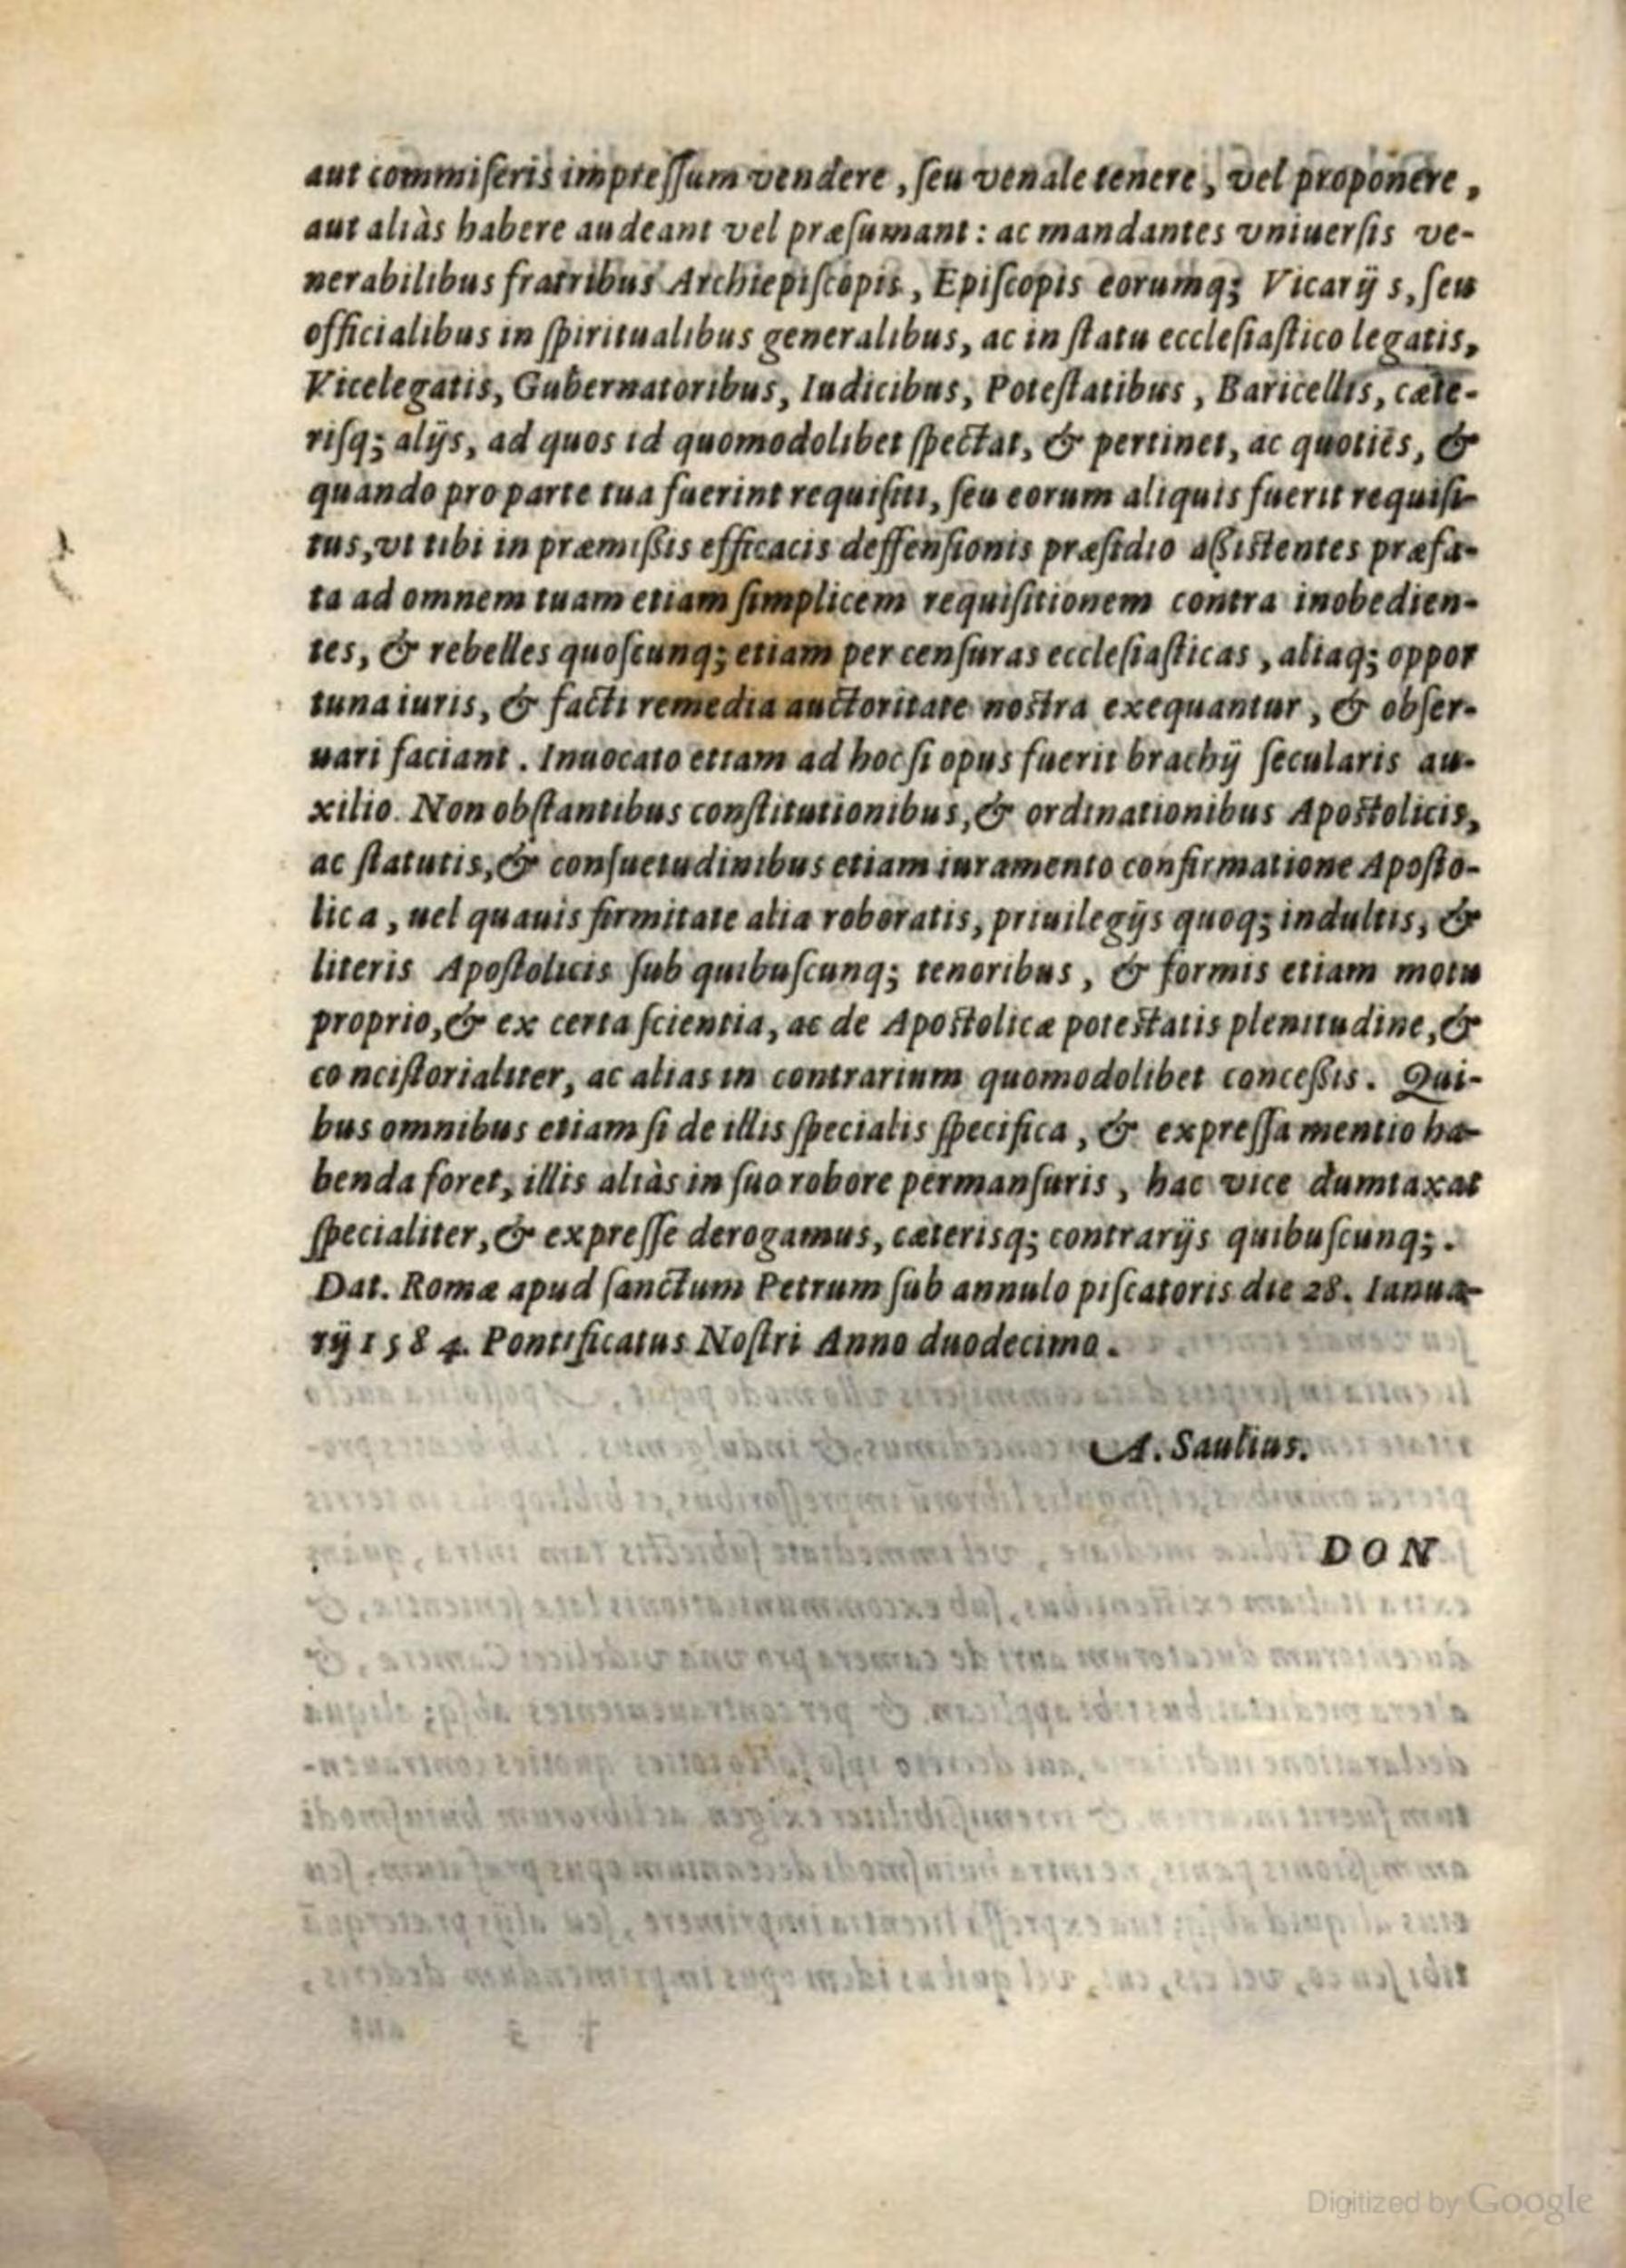 aut commiſeris impreſſum vendere, ſeu venale tenere, vel proponere,
aut aliàs habere audeant vel præſumant: ac mandantes vniuerſis ve-
nerabilibus fratribus Archiepiſcopis, Epiſcopis eorumq; Vicarijs, ſeu
officialibus in ſpiritualibus generalibus, ac in ſtatu eccleſiaſtico legatis,
Vicelegatis, Gubernatoribus, Iudicibus, Poteſtatibus, Baricellis, cæte-
riſq; alijs, ad quos id quomodolibet ſpectat, & pertinet, ac quotiēs, &
quando pro parte tua fuerint requiſiti, ſeu eorum aliquis fuerit requiſi-
tus, vt tibi in præmißis efficacis deffenſionis præſidio aßiſtentes præfa-
ta ad omnem tuam etiam ſimplicem requiſitionem contra inobedien-
tes, & rebelles quoſcunq; etiam per cenſuras eccleſiaſticas, aliaq; oppor
tuna iuris, & facti remedia auctoritate noſtra exequantur, & obſer-
uari faciant. Inuocato etiam ad hoc ſi opus fuerit brachij ſecularis au-
xilio. Non obſtantibus conſtitutionibus, & ordinationibus Apoſtolicis,
ac ſtatutis, & conſuetudinibus etiam iuramento confirmatione Apoſto-
lica, uel quauis firmitate alia roboratis, priuilegijs quoq; indultis, &
literis Apoſtolicis ſub quibuſcunq; tenoribus, & formis etiam motu
proprio, & ex certa ſcientia, ac de Apoſtolicæ poteſtatis plenitudine, &
conciſtorialiter, ac alias in contrarium quomodolibet conceßis. Qui-
bus omnibus etiam ſi de illis ſpecialis ſpecifica, & expreſſa mentio ha-
benda foret, illis aliàs in ſuo robore permanſuris, hac vice dumtaxat
ſpecialiter, & expreſſe derogamus, cæterisq; contrarijs quibuſcunq;.
Dat. Romæ apud ſanctum Petrum ſub annulo piſcatoris die 28. Ianua-
rij 1584. Pontificatus Noſtri Anno duodecimo.
A. Saulius.
DON
Digitized by Google